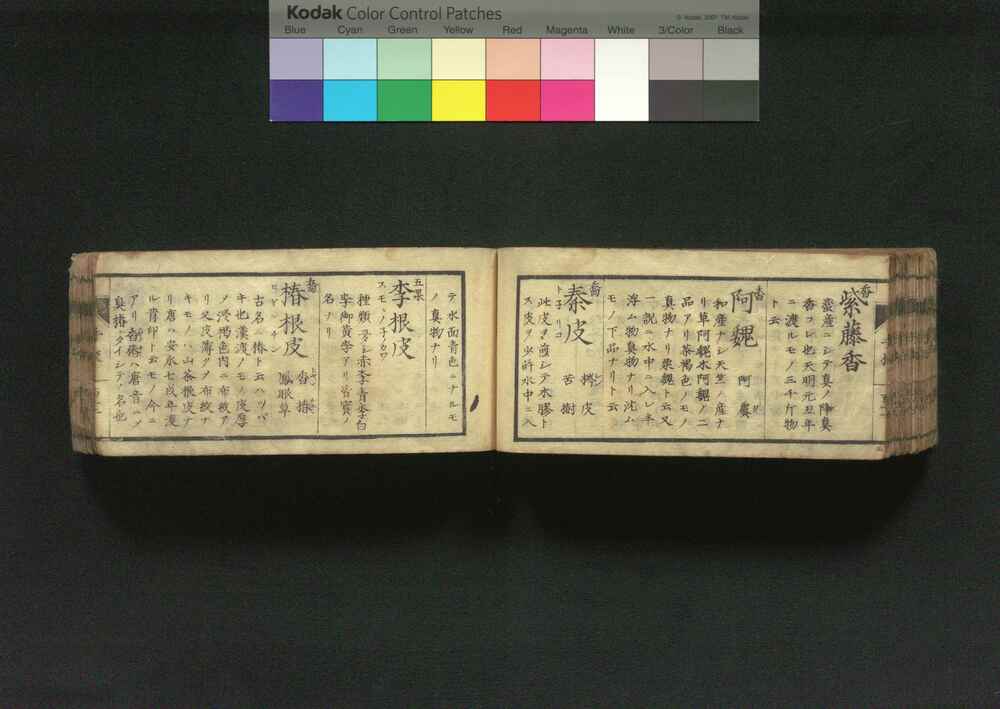 Kodak Color Control Patches
© Kodak, 2007 TM: Kodak
Blue Cyan Green Yellow Red Magenta White 3/Color Black
紫藤香
臺産ニシテ真ノ降真
香コレ也天明元丑年
ニ渡ルモノ三千斤物
ト云
阿魏
阿虞
和産ナシ天生ノ産ナ
リ草阿魏木阿魏ノ二
品アリ茶褐色ノモノ
真物ナリ栗魏ト云又
一説ニ水中ニ入レ半
浮ム物真物ナリ沈ム
モノハ下品ナリト云
秦皮
トネリコ
梣皮
苦樹
此皮ヲ煎シテ水膠ト
ス皮ヲ少許水中ニ入
テ水面青色ニナルモ
ノ真物ナリ
五果
李根皮
スモヽノ子カワ
種類多シ赤李青李白
李御黄李アリ皆實ノ
名ナリ
椿根皮
香椿
鳳眼草
古名ニ椿ト云ハツバ
キ也漢渡ノモノ皮厚
ノ淺褐色肉ニ布紋ア
リ又皮薄クノ布紋ナ
キモノハ山茶根皮ナ
リ唐ハ安永七戌年渡
ル肯印ト云モノ今ニ
アリ香椿ハ唐音ハノ
臭椿タイシテノ名也